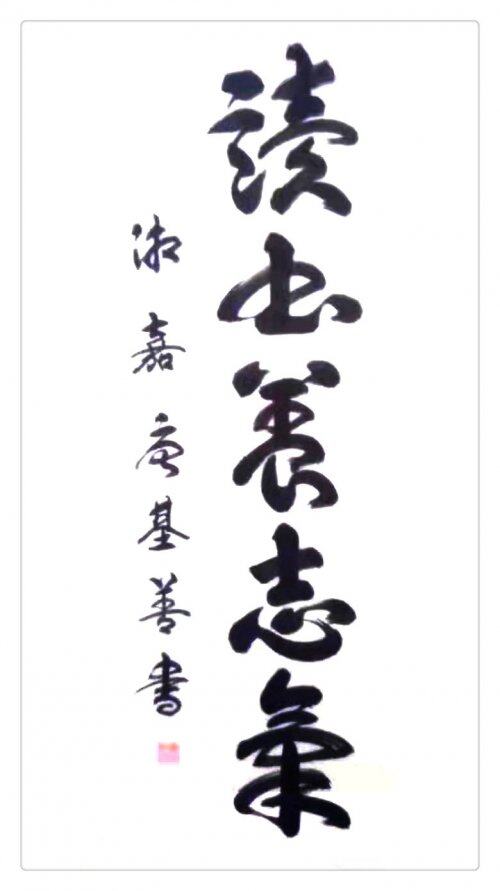 讀书養志氣
湘嘉唐基善書